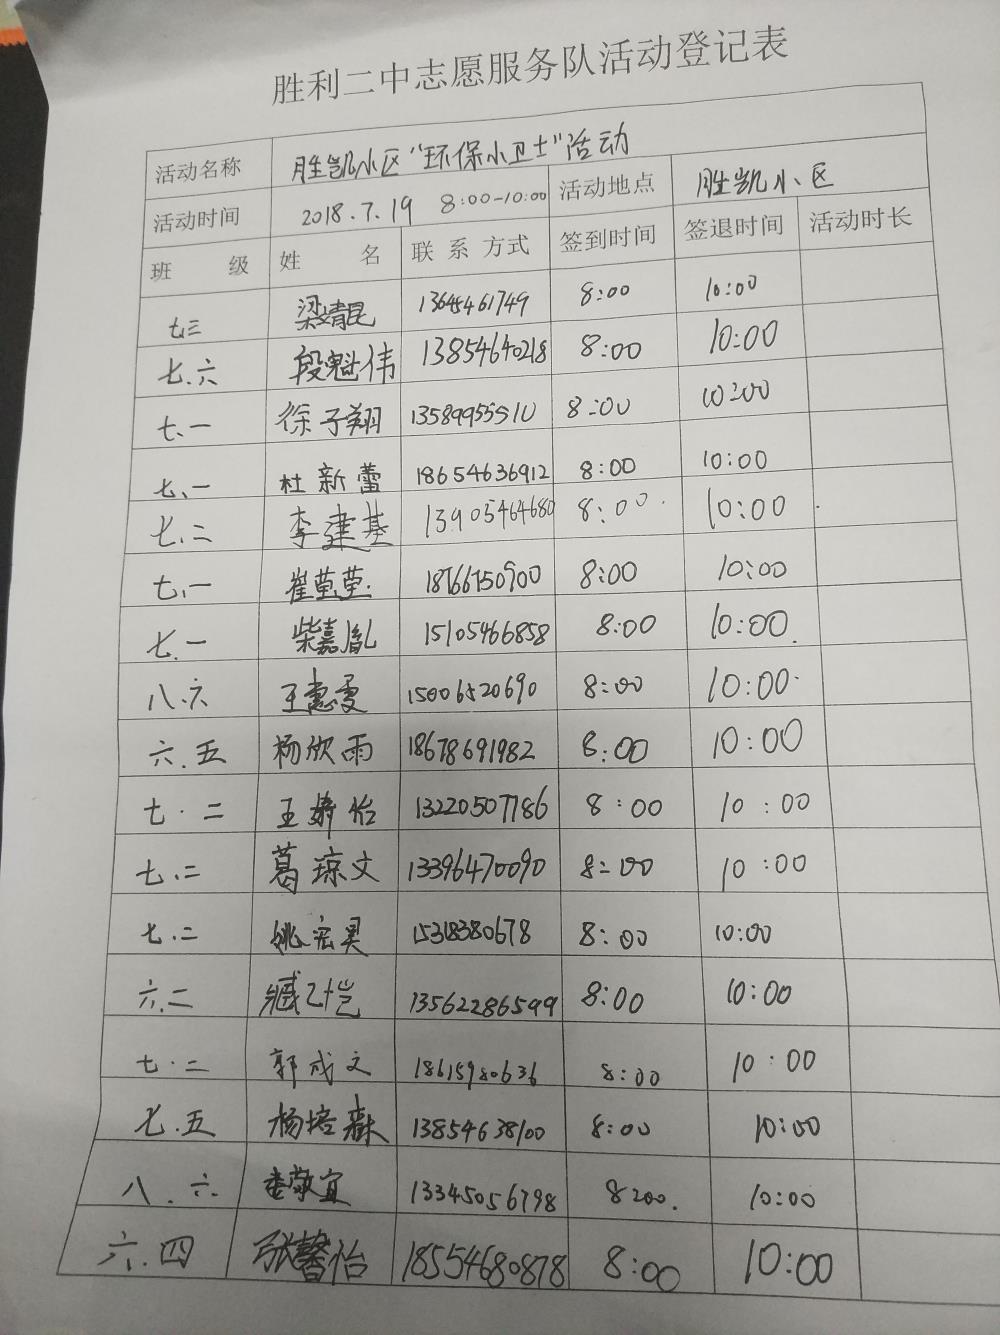 胜利二中志愿服务队活动登记表
活动名称 胜凯小区“环保小卫士”活动
活动时间 2018.7.19 8:00-10:00 活动地点 胜凯小区
班 级 姓 名 联系方式 签到时间 签退时间 活动时长
七三 梁靖昆 13645461749 8:00 10:00
七.六 段魁伟 13854640218 8:00 10:00
七、一 徐子翔 13589955510 8:00 10:00
七、一 杜新蕾 18654636912 8:00 10:00
七.二 李建基 13905464680 8:00 10:00
七、一 崔莹莹 18766750900 8:00 10:00
七.一 柴嘉胤 15105466858 8:00 10:00
八.六 王惠雯 15006520690 8:00 10:00
六.五 杨欣雨 18678691982 8:00 10:00
七.二 王婧怡 13220507786 8:00 10:00
七.二 葛琼文 13396470090 8:00 10:00
七.二 姚宏昊 15318380678 8:00 10:00
六.二 臧 恺 13562286599 8:00 10:00
七.二 郭成文 18615980636 8:00 10:00
七.五 杨培森 13854638100 8:00 10:00
八.六 敬宜 13345056798 8:00 10:00
六.四 张馨怡 18554680878 8:00 10:00